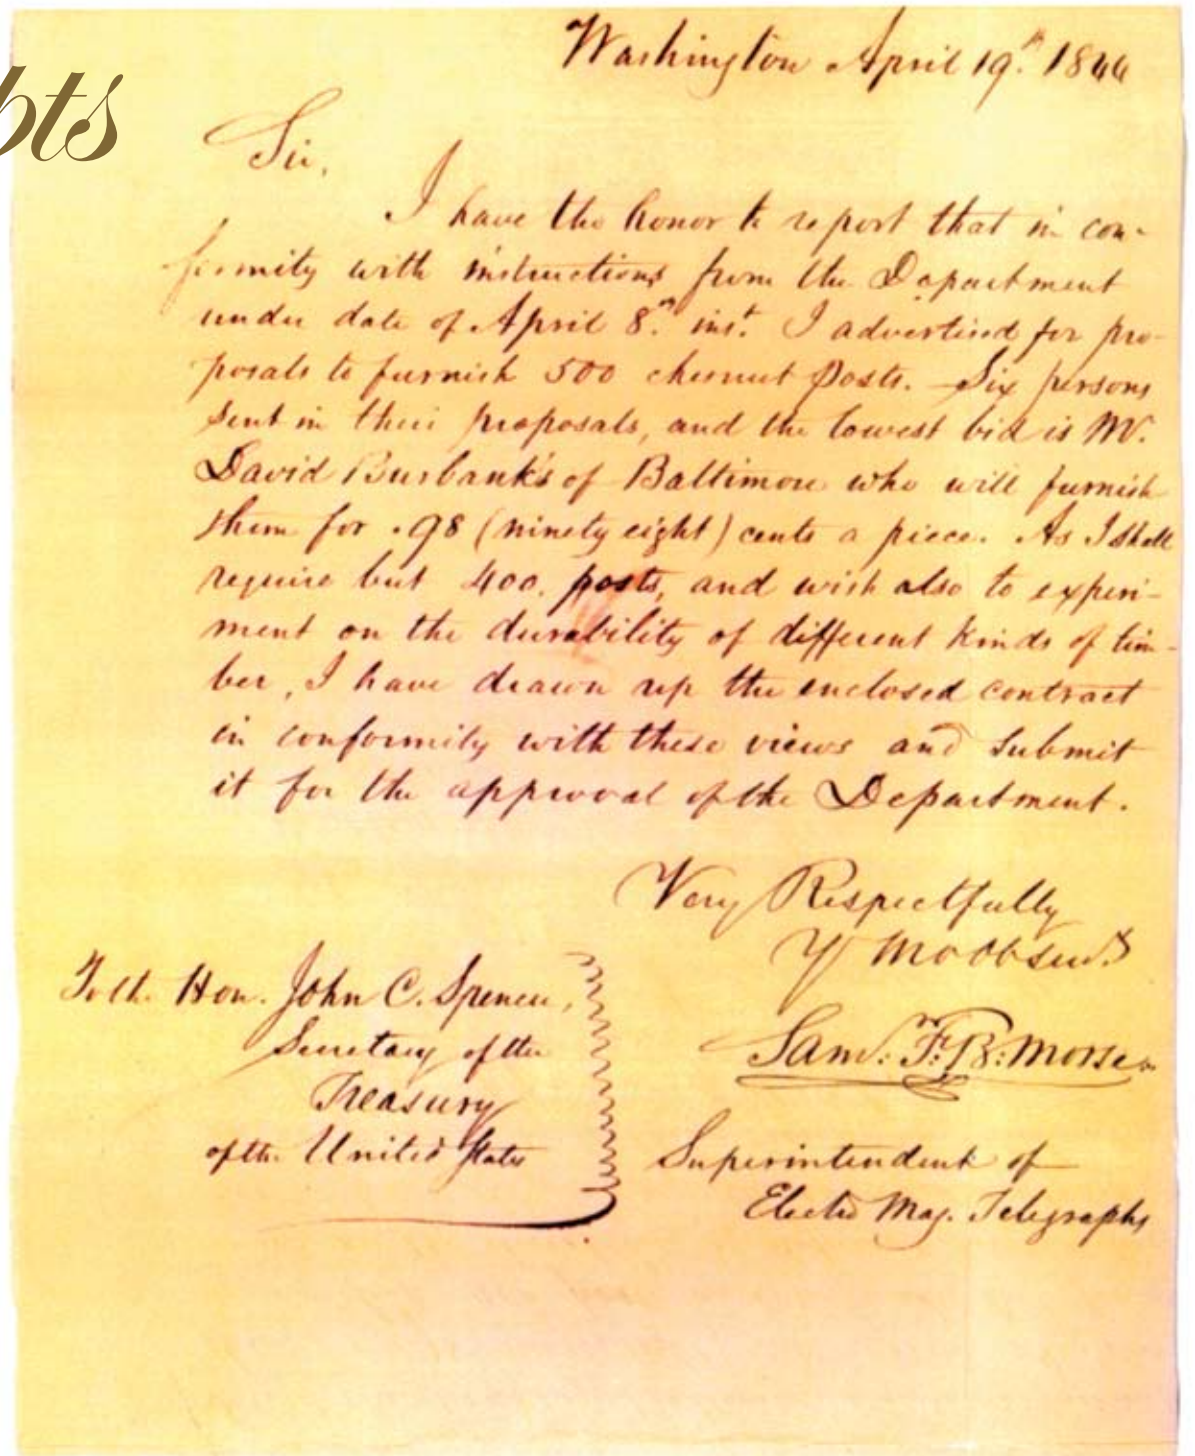 Washington April 19th. 1844
bts
Sir,
I have the honor to report that in con-
formity with instructions from the Department
under date of April 8th. inst. I advertised for pro-
posals to furnish 500 chesnut posts. Six persons
sent in their proposals, and the lowest bid is Mr.
David Burbank's of Baltimore who will furnish
them for .98 (ninety eight) cents a piece. As I shall
require but 400. posts, and wish also to experi-
ment on the durability of different kinds of tim-
ber, I have drawn up the enclosed contract
in conformity with these views and submit
it for the approval of the Department.
Very Respectfully
Yr Mo Ob Servt
Saml. F. B. Morse
Superintendent of
Electro Mag. Telegraphs
To the Hon. John C. Spencer,
Secretary of the
Treasury
of the United States